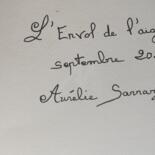 L'Envol de l'aig
septembre 20
Aurélie